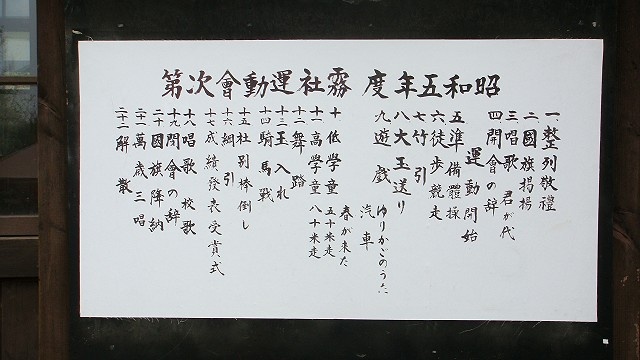 昭和五年度 霧社運動會次第
一、整列敬禮
二、國旗揭揚
三、唱歌 君が代
四、開會の辞
運動開始
五、準備體操
六、徒歩競走
七、竹引
八、大玉送り
九、遊戲
ゆりかごのうた
汽車
春が来た
十、低學童 五十米走
十一、高學童 八十米走
十二、舞踏
十三、玉入れ
十四、騎馬戰
十五、社別棒倒し
十六、綱引
十七、成績發表受賞式
十八、唱歌 校歌
十九、閉會の辞
二十、國旗降納
二十一、萬歲三唱
二十二、解散